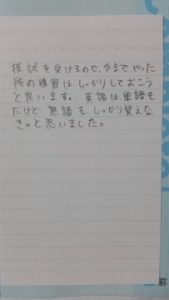 模試を受けるので、今までやった
所の復習はしっかりしておこう
と思います。英語は単語も
だけど 熟語もしっかり覚えな
きゃと思いました。